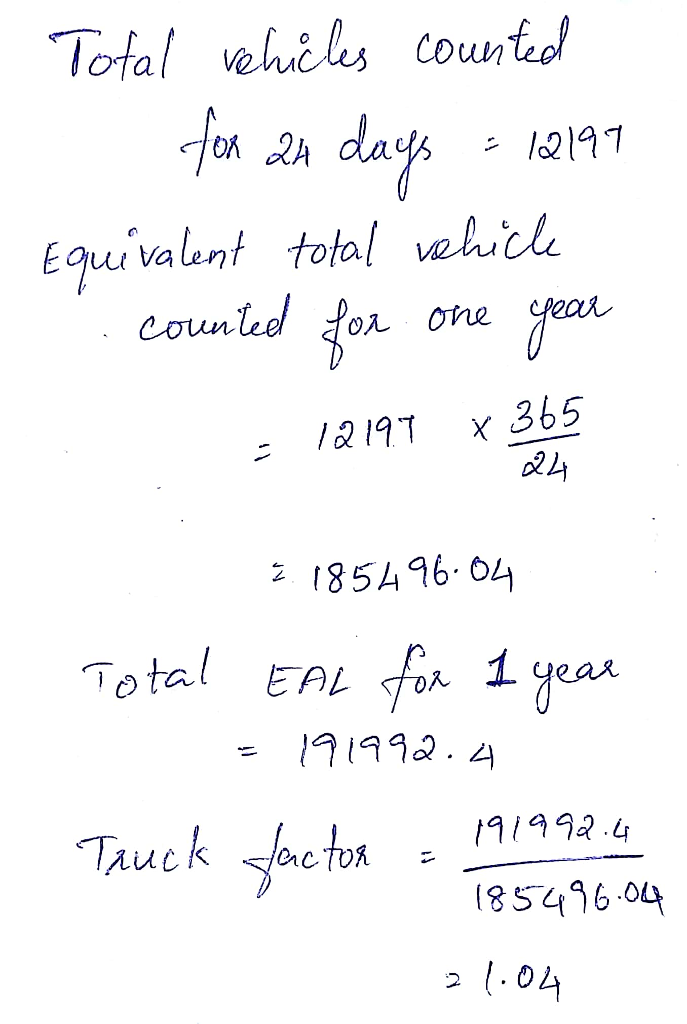 Total vehicles counted
for 24 days = 12197
Equivalent total vehicle
counted for one year
= 12197 x 365
24
= 185496.04
Total EAL for 1 year
= 191992.4
Truck factor = 191992.4
185496.04
= 1.04